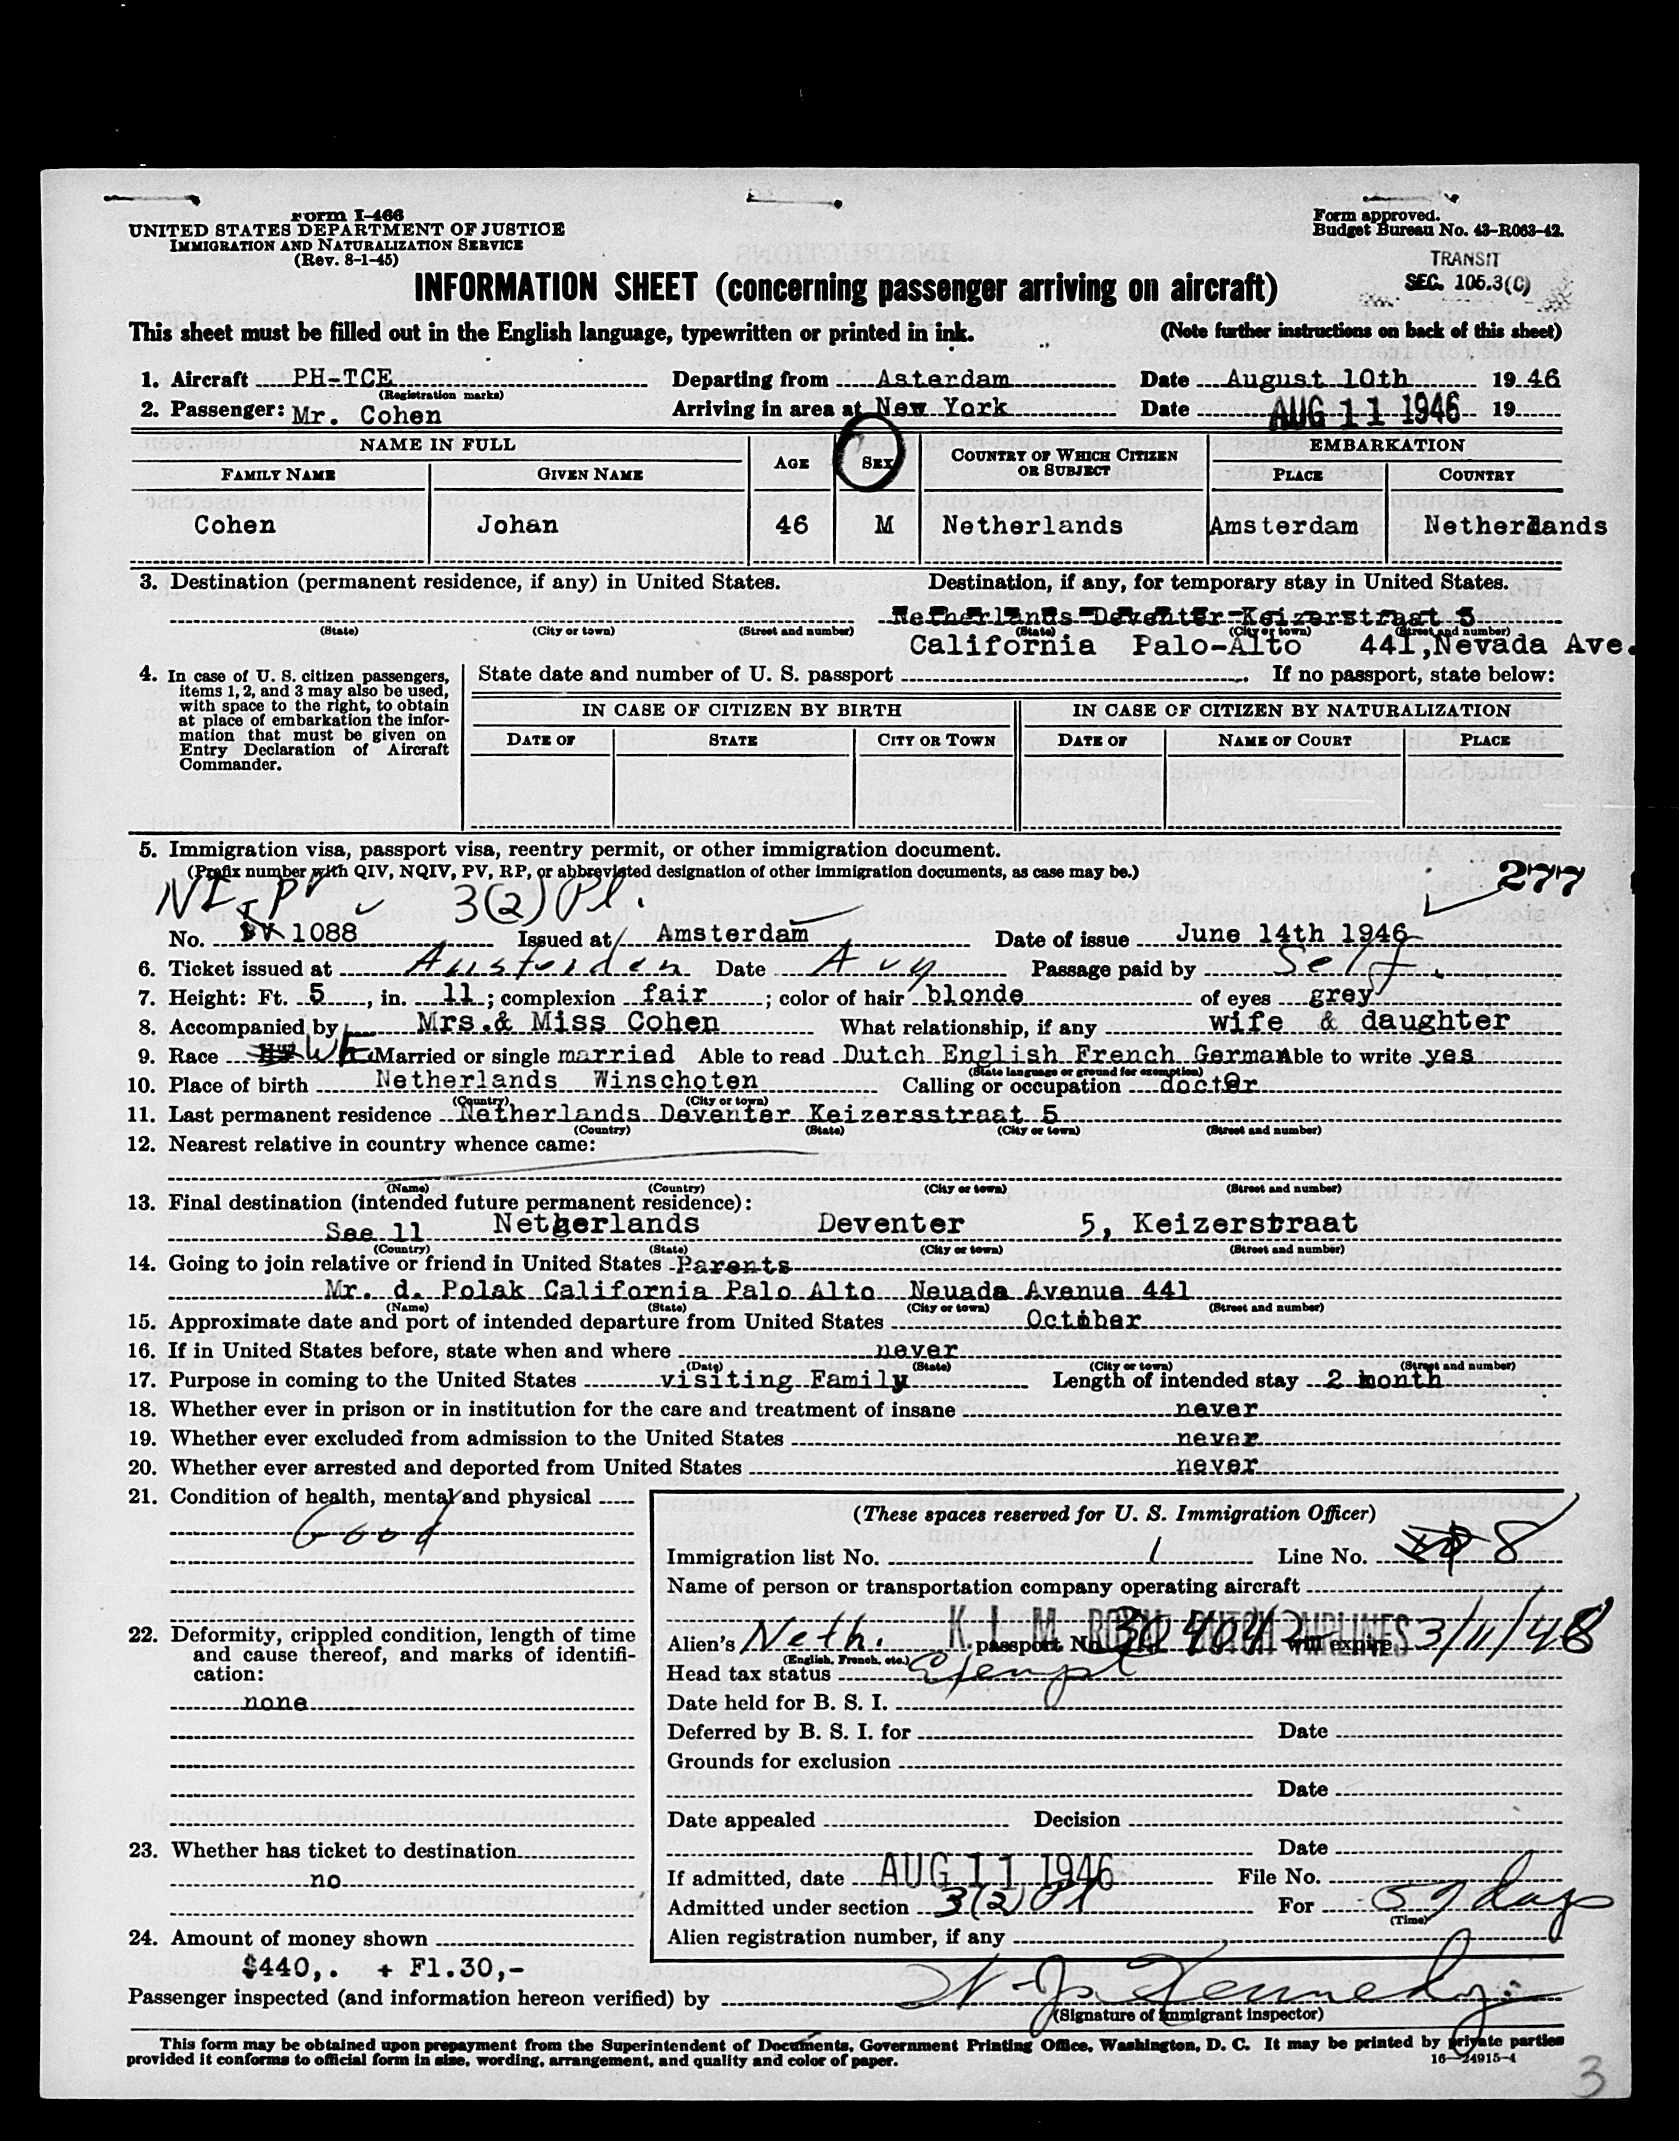 Form I-466
UNITED STATES DEPARTMENT OF JUSTICE
IMMIGRATION AND NATURALIZATION SERVICE
(Rev. 8-1-45)
Form approved.
Budget Bureau No. 43-R063-42.
TRANSIT
SEC. 105.3(C)
INFORMATION SHEET (concerning passenger arriving on aircraft)
This sheet must be filled out in the English language, typewritten or printed in ink. (Note further instructions on back of this sheet)
1. Aircraft PH-TCE Departing from Asterdam Date August 10th 1946
(Registration marks)
2. Passenger: Mr. Cohen Arriving in area at New York Date AUG 11 1946 19
NAME IN FULL AGE SEX COUNTRY OF WHICH CITIZEN OR SUBJECT EMBARKATION
FAMILY NAME GIVEN NAME PLACE COUNTRY
Cohen Johan 46 M Netherlands Amsterdam Netherlands
3. Destination (permanent residence, if any) in United States. Destination, if any, for temporary stay in United States.
Netherlands Deventer Keizerstraat 5
(State) (City or town) (Street and number) (State) (City or town) (Street and number)
California Palo-Alto 441,Nevada Ave.
4. In case of U. S. citizen passengers, items 1, 2, and 3 may also be used, with space to the right, to obtain at place of embarkation the information that must be given on Entry Declaration of Aircraft Commander.
State date and number of U. S. passport If no passport, state below:
IN CASE OF CITIZEN BY BIRTH IN CASE OF CITIZEN BY NATURALIZATION
DATE OF STATE CITY OR TOWN DATE OF NAME OF COURT PLACE
5. Immigration visa, passport visa, reentry permit, or other immigration document.
(Prefix number with QIV, NQIV, PV, RP, or abbreviated designation of other immigration documents, as case may be.)
277
3(2) Pl.
No. 1088 Issued at Amsterdam Date of issue June 14th 1946
6. Ticket issued at Amsterdam Date Aug Passage paid by Self
7. Height: Ft. 5, in. 11; complexion fair; color of hair blonde of eyes grey
8. Accompanied by Mrs.& Miss Cohen What relationship, if any wife & daughter
9. Race Married or single married Able to read Dutch English French German Able to write yes
(State language or ground for exemption)
10. Place of birth Netherlands Winschoten Calling or occupation docter
(Country) (City or town)
11. Last permanent residence Netherlands Deventer Keizersstraat 5
(Country) (State) (City or town) (Street and number)
12. Nearest relative in country whence came:
(Name) (Country) (City or town) (Street and number)
13. Final destination (intended future permanent residence):
See 11 Netherlands Deventer 5, Keizerstraat
(Country) (State) (City or town) (Street and number)
14. Going to join relative or friend in United States Parents
Mr. d. Polak California Palo Alto Neuada Avenue 441
(Name) (State) (City or town) (Street and number)
15. Approximate date and port of intended departure from United States October
16. If in United States before, state when and where never
(Date) (State) (City or town) (Street and number)
17. Purpose in coming to the United States visiting Family Length of intended stay 2 month
18. Whether ever in prison or in institution for the care and treatment of insane never
19. Whether ever excluded from admission to the United States never
20. Whether ever arrested and deported from United States never
21. Condition of health, mental and physical
Good
22. Deformity, crippled condition, length of time and cause thereof, and marks of identification:
none
23. Whether has ticket to destination
no
24. Amount of money shown
$440,. + Fl.30,-
(These spaces reserved for U. S. Immigration Officer)
Immigration list No. 1 Line No. 8
Name of person or transportation company operating aircraft
K. L. M. ROYAL DUTCH AIRLINES
Alien's Neth. passport No. 304042 will expire 3/11/48
(English, French, etc.)
Head tax status Exempt
Date held for B. S. I.
Deferred by B. S. I. for Date
Grounds for exclusion
Date
Date appealed Decision
Date
If admitted, date AUG 11 1946 File No.
Admitted under section 3(2) Pl For 59 days
(Time)
Alien registration number, if any
Passenger inspected (and information hereon verified) by Kennedy
(Signature of immigrant inspector)
This form may be obtained upon prepayment from the Superintendent of Documents, Government Printing Office, Washington, D. C. It may be printed by private parties
provided it conforms to official form in size, wording, arrangement, and quality and color of paper.
16—24915-4
3